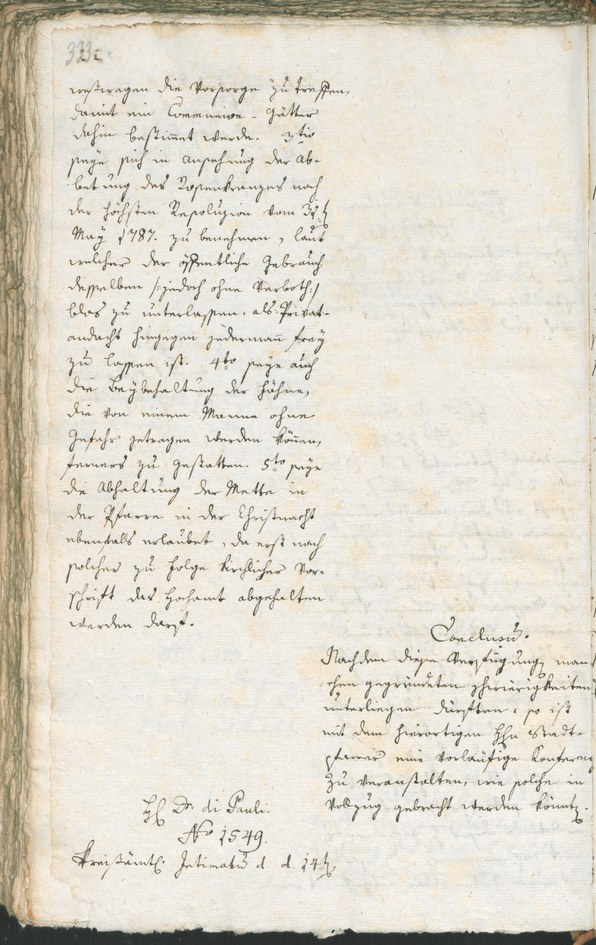 333.
weßwegen die Vorsorge zu treffen,
damit ein Communion-Gätter
dahin bestimet werde. 3tio
seye sich in Ansehung der Ab-
betung des Rosenkranzes nach
der höchsten Resoluzion vom
May 1787. zu benehmen, laut
welcher der öffentliche Gebrauch
desselben /:jedoch ohne Verboth:/
blos zu unterlassen, als Privat-
andacht hingegen jedermann frey
zu lassen ist. 4to seye auch
die Beybehaltung der Fähne,
die von einem Manne ohne
Gefahr getragen werden könen,
ferners zu gestatten. 5to seye
die Abhaltung der Mette in
der Pfarre in der Christnacht
ebenfalls erlaubet, da erst nach
solcher zu Folge kirchlicher Vor-
schrift das Hochamt abgehalten
werden darf.
Conclusum.
Nachdem diese Verfügung man-
chen gegründeten Schwierigkeiten
unterliegen dürften: so ist
mit dem hierortigen Hhn Stadt-
pfarrer eine vorläufige Konferenz
zu veranstalten, wie solche in
Vollzug gebracht werden könnte.
H Dr. di Pauli.
No 1549.
Kreisämtl. Intimatum d. d. 14t